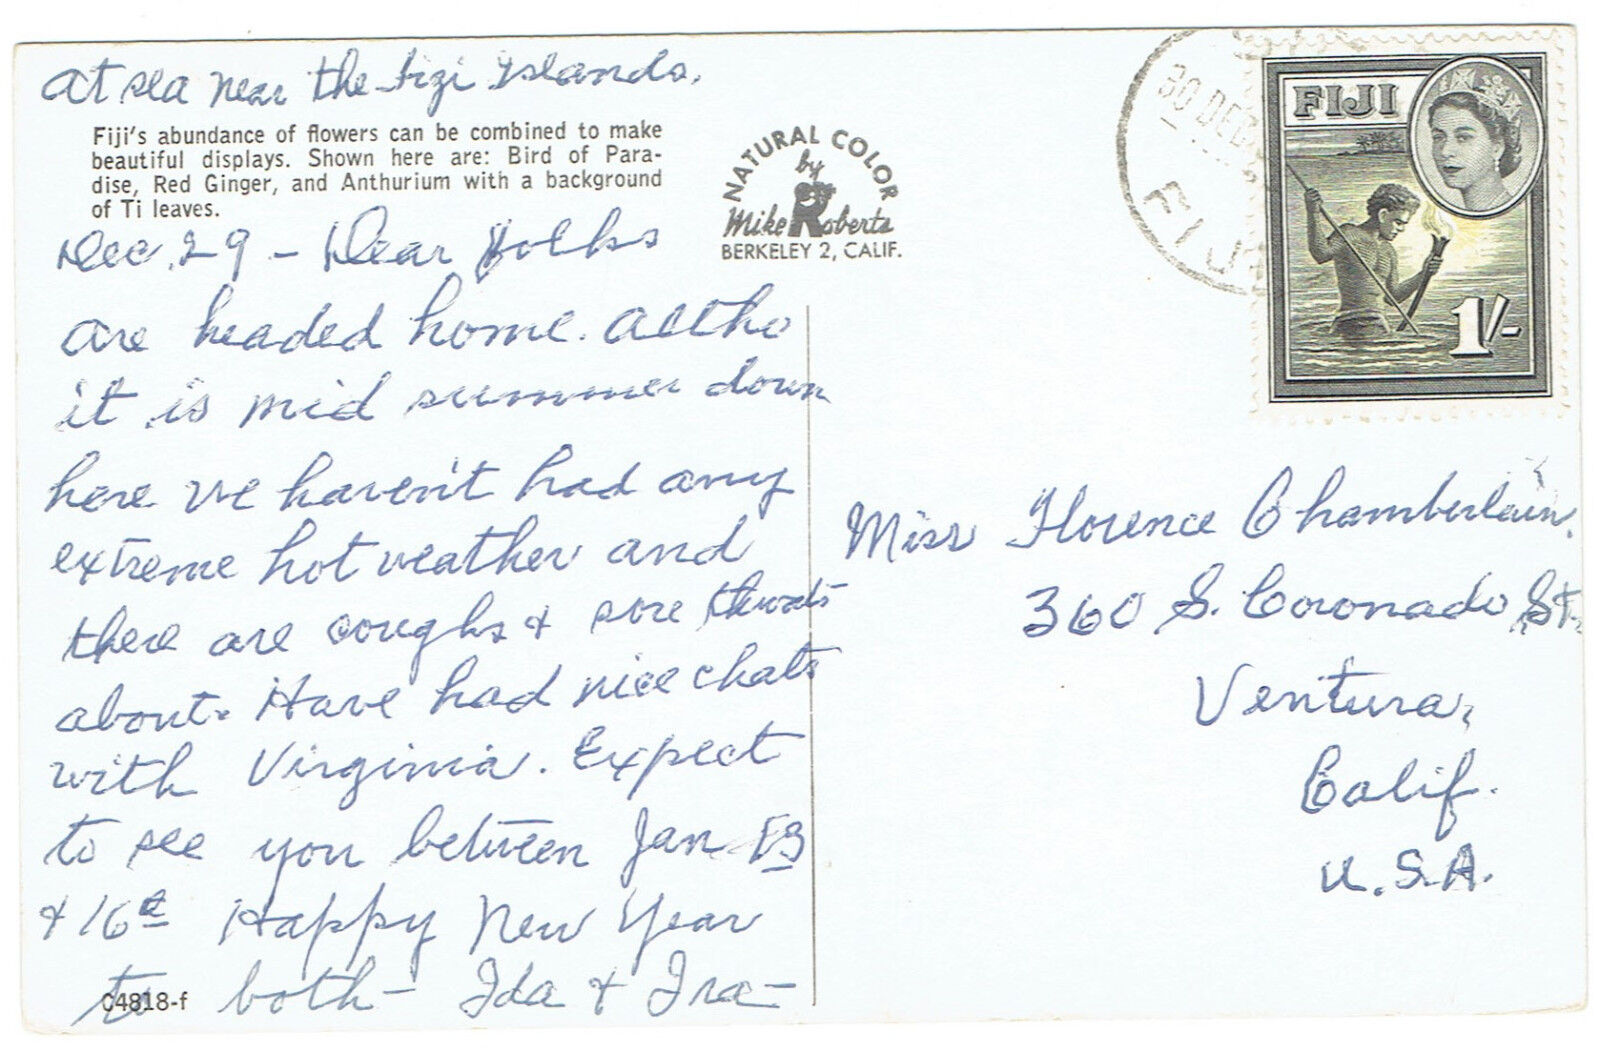 At sea near the Fizi Islands.
Fiji's abundance of flowers can be combined to make
beautiful displays. Shown here are: Bird of Para-
dise, Red Ginger, and Anthurium with a background
of Ti leaves.
Dec. 29 - Dear Folks
are headed home. Altho
it is mid summer down
here we haven't had any
extreme hot weather and
there are coughs & sore throats
about. Have had nice chats
with Virginia. Expect
to see you between Jan 13
& 16th Happy New Year
to both - Ida & Ira -
C4818-f
NATURAL COLOR
by
Mike Roberts
BERKELEY 2, CALIF.
30 DEC
FIJI
FIJI
1/-
Miss Florence Chamberlain.
360 S. Coronado St.
Ventura,
Calif.
U.S.A.